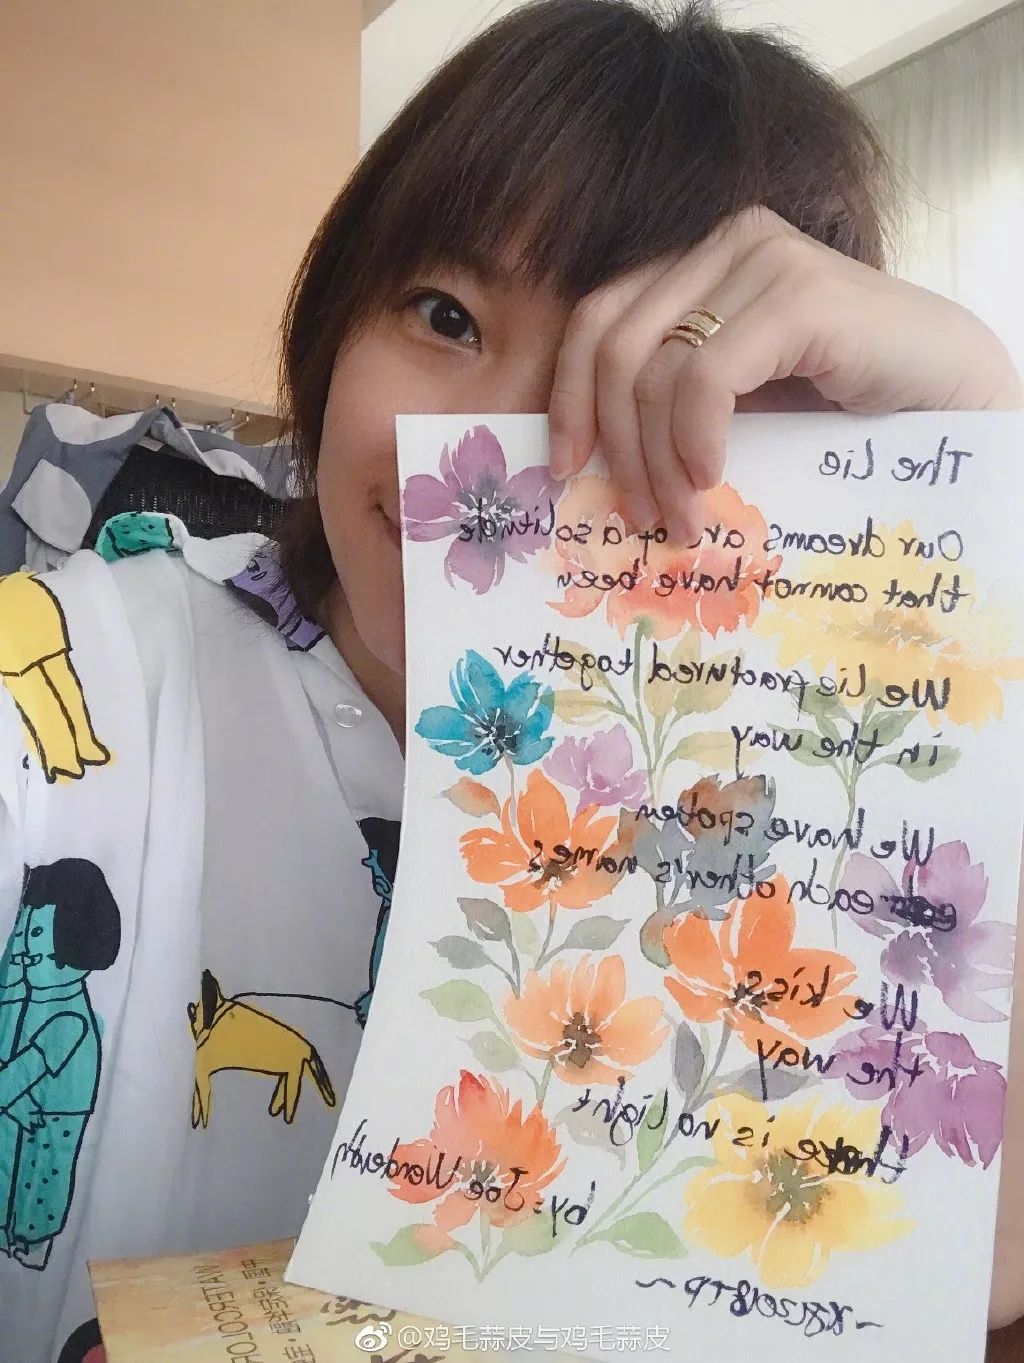 The Lie
Our dreams are of a solitude
that cannot have been
We lie fractured together
in the way
We have spoken
each other's names
We kiss
the way
there is no light
by: Joe Wenderoth
WATERCOLOR
中国·
@鸡毛蒜皮与鸡毛蒜皮